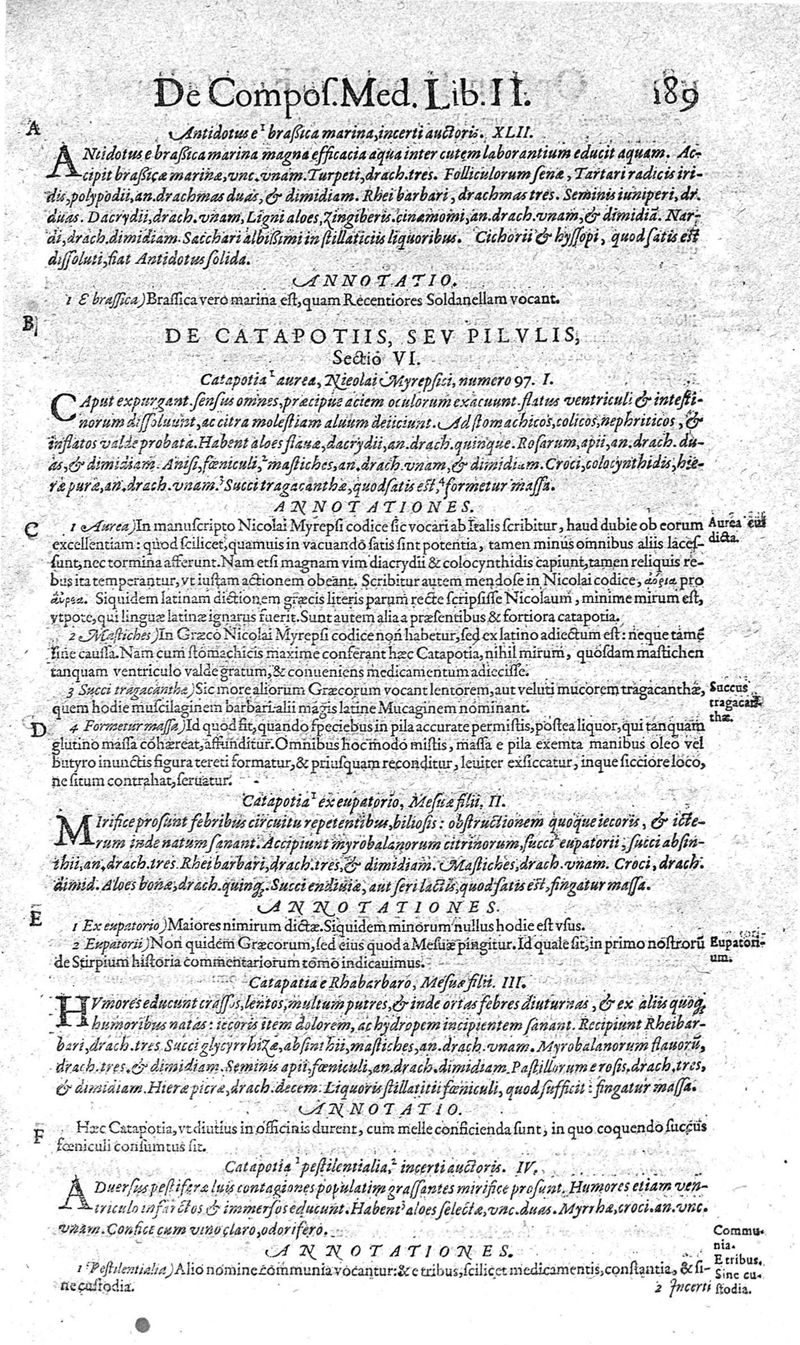 De Compoſ. Med. Lib. II. 189
A
Antidotus e¹ braßica marina, incerti auctoris. XLII.
ANtidotus e braßica marina magna efficacia aqua inter cutem laborantium educit aquam. Ac-
cipit braßicæ marinæ, vnc. vnam. Turpeti, drach. tres. Folliculorum ſenæ, Tartari radicis iri-
dis, polypodii, an. drachmas duas, & dimidiam. Rhei barbari, drachmas tres. Seminis iuniperi, dr.
duas. Dacrydii, drach. vnam, Ligni aloes, zingiberis. cinamomi, an. drach. vnam, & dimidiā. Nar-
di, drach. dimidiam. Sacchari albißimi in ſtillaticiis liquoribus. Cichorii & hyſſopi, quod ſatis eſt
diſſoluti, fiat Antidotus ſolida.
ANNOTATIO.
1 E braſſica) Braſſica vero marina eſt, quam Recentiores Soldanellam vocant.
B
DE CATAPOTIIS, SEV PILVLIS,
Sectio VI.
Catapotia¹ aurea, Nicolai Myrepſici, numero 97. I.
CAput expurgant. ſenſus omines, præcipue aciem oculorum exacuunt. flatus ventriculi & inteſti-
norum diſſoluunt, ac citra moleſtiam aluum deiiciunt. Ad ſtomachicos, colicos, nephriticos, &
inflatos valde probata. Habent aloes flauæ, dacrydii, an. drach. quinque. Roſarum, apii, an. drach. du-
as, & dimidiam. Aniſi, fœniculi,² maſtiches, an. drach. vnam, & dimidiam. Croci, colocynthidis, hie-
ræ puræ, an. drach. vnam.³ Succi tragacanthæ, quod ſatis eſt,⁴ formetur maſſa.
ANNOTATIONES.
C
1 Aurea) In manuſcripto Nicolai Myrepſi codice ſic vocari ab Italis ſcribitur, haud dubie ob eorum
Aurea cur
excellentiam: quod ſcilicet, quamuis in vacuando ſatis ſint potentia, tamen minus omnibus aliis laceſ-
dicta.
ſunt, nec tormina afferunt. Nam etſi magnam vim diacrydii & colocynthidis capiunt, tamen reliquis re-
bus ita temperantur, vt iuſtam actionem obeant. Scribitur autem mendoſe in Nicolai codice, ἀύρια, pro
ἀύρεα. Siquidem latinam dictionem græcis literis parum recte ſcripſiſſe Nicolaum, minime mirum eſt,
vtpote, qui linguæ latinæ ignarus fuerit. Sunt autem alia a præſentibus & fortiora catapotia.
2 Maſtiches) In Græco Nicolai Myrepſi codice non habetur, ſed ex latino adiectum eſt: neque tamē
ſine cauſſa. Nam cum ſtomachicis maxime conferant hæc Catapotia, nihil mirum, quoſdam maſtichen
tanquam ventriculo valde gratum, & conueniens medicamentum adieciſſe.
3 Succi tragacanthæ) Sic more aliorum Græcorum vocant lentorem, aut veluti mucorem tragacanthæ,
Succus
quem hodie muſcilaginem barbari: alii magis latine Mucaginem nominant.
tragacan-
thæ.
D
4 Formetur maſſa) Id quod fit, quando ſpeciebus in pila accurate permiſtis, poſtea liquor, qui tanquam
glutino maſſa cohæreat, affunditur. Omnibus hoc modo miſtis, maſſa e pila exemta manibus oleo vel
butyro inunctis figura tereti formatur, & priuſquam reconditur, leuiter exſiccatur, inque ſicciore loco,
ne ſitum contrahat, ſeruatur.
Catapotia¹ ex eupatorio, Meſuæ filii. II.
MIrifice proſunt febribus circuitu repetentibus, bilioſis: obſtructionem quoque iecoris, & icte-
rum inde natum ſanant. Accipiunt myrobalanorum citrinorum, ſucci² eupatorii, ſucci abſin-
thii, an. drach. tres. Rhei barbari, drach. tres, & dimidiam. Maſtiches, drach. vnam. Croci, drach.
dimid. Aloes bonæ, drach. quinq;. Succi endiuiæ, aut ſeri lactis, quod ſatis eſt, fingatur maſſa.
ANNOTATIONES.
E
1 Ex eupatorio) Maiores nimirum dictæ. Siquidem minorum nullus hodie eſt vſus.
2 Eupatorii) Non quidem Græcorum, ſed eius quod a Meſuæ pingitur. Id quale ſit, in primo noſtrorū
Eupatori-
de Stirpium hiſtoria commentariorum tomo indicauimus.
um.
Catapatia e Rhabarbaro, Meſuæ filii. III.
HVmores educunt craſſos, lentos, multum putres, & inde ortas febres diuturnas, & ex aliis quoq;
humoribus natas: iecoris item dolorem, ac hydropem incipientem ſanant. Recipiunt Rhei bar-
bari, drach. tres. Succi glycyrrhizæ, abſinthii, maſtiches, an. drach. vnam. Myrobalanorum flauorū,
drach. tres, & dimidiam. Seminis apii, fœniculi, an. drach. dimidiam. Paſtillorum e roſis, drach. tres,
& dimidiam. Hieræ picræ, drach. decem. Liquoris ſtillatitii fœniculi, quod ſufficit: fingatur maſſa.
ANNOTATIO.
F
Hæc Catapotia, vt diutius in officinis durent, cum melle conficienda ſunt, in quo coquendo ſuccus
fœniculi conſumtus ſit.
Catapotia¹ peſtilentialia,² incerti auctoris. IV.
ADuerſus peſtiferæ luis contagiones populatim graſſantes mirifice proſunt. Humores etiam ven-
triculo infarctos & immerſos educunt. Habent³ aloes ſelectæ, vnc. duas. Myrrhæ, croci. an. vnc.
vnam. Confice cum vino claro, odorifero.
Commu-
ANNOTATIONES.
nia.
E tribus.
1 Peſtilentialia) Alio nomine communia vocantur: & e tribus, ſcilicet medicamentis, conſtantia, & ſi-
Sine cu-
ne cuſtodia. 2 Incerti
ſtodia.